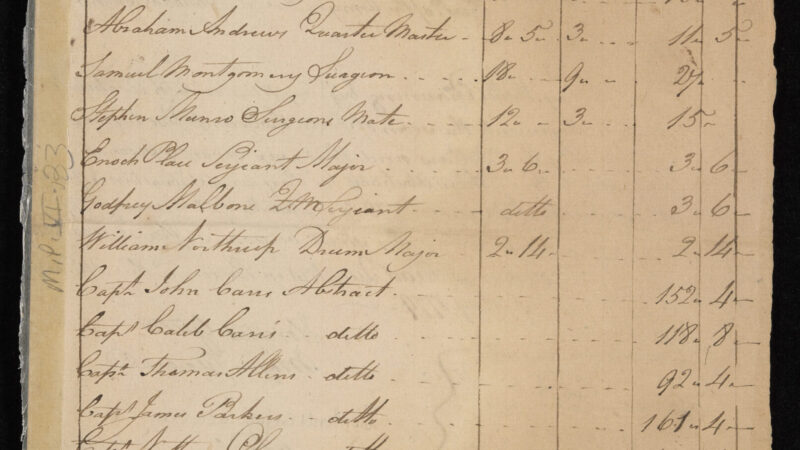 Abraham Andrews Quarter Master - 8 " 5 " 3 " 11 " 5 "
Samuel Montgomery Surgeon 18 " 9 " 27 "
Stephen Munro Surgeons Mate 12 " 3 " 15 "
Enoch Place Serjeant Major 3 " 6 " 3 " 6 "
Godfrey Malbone Serjeant ditto 3 " 6 "
William Northrup Drum Major 2 " 14 " 2 " 14 "
Capt. John Carrs Abstract 152 " 4 "
Capt. Caleb Carrs ditto 118 " 8 "
Capt. Thomas Allens ditto 92 " 4 "
Capt. James Parkers ditto 161 " 4 "